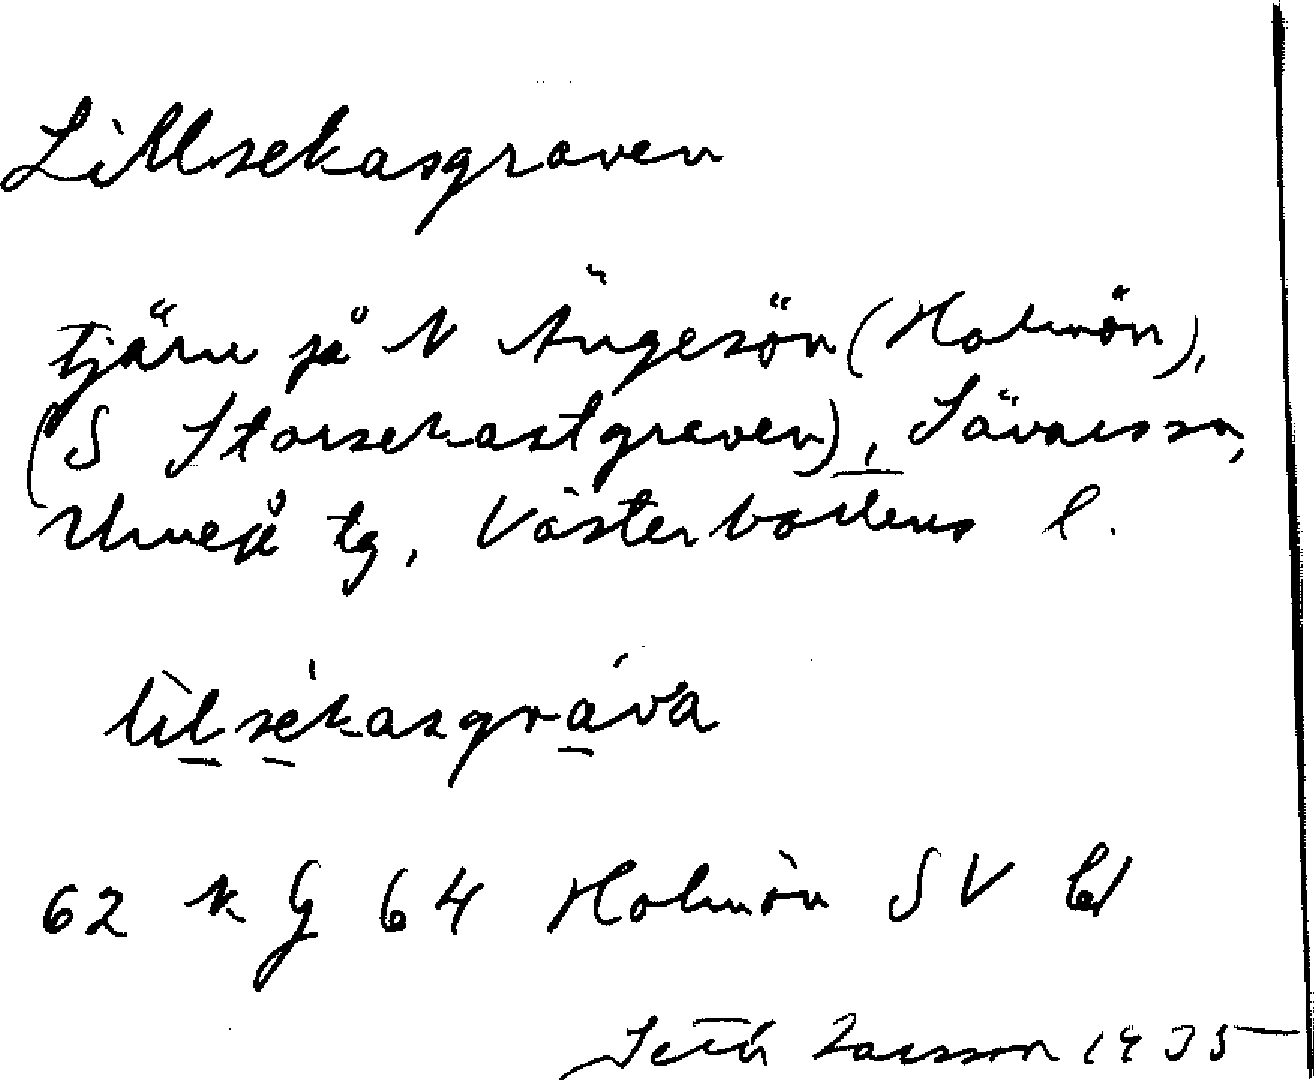 Lillsekasgraven
tjärn på N Ängesön (Holmön),
(S Storsekastgraven), Sävars sn,
Umeå tg, Västerbottens l.
lilsekasgráva
62 k G 64 Holmön SV bl
Seth Larsson 1935